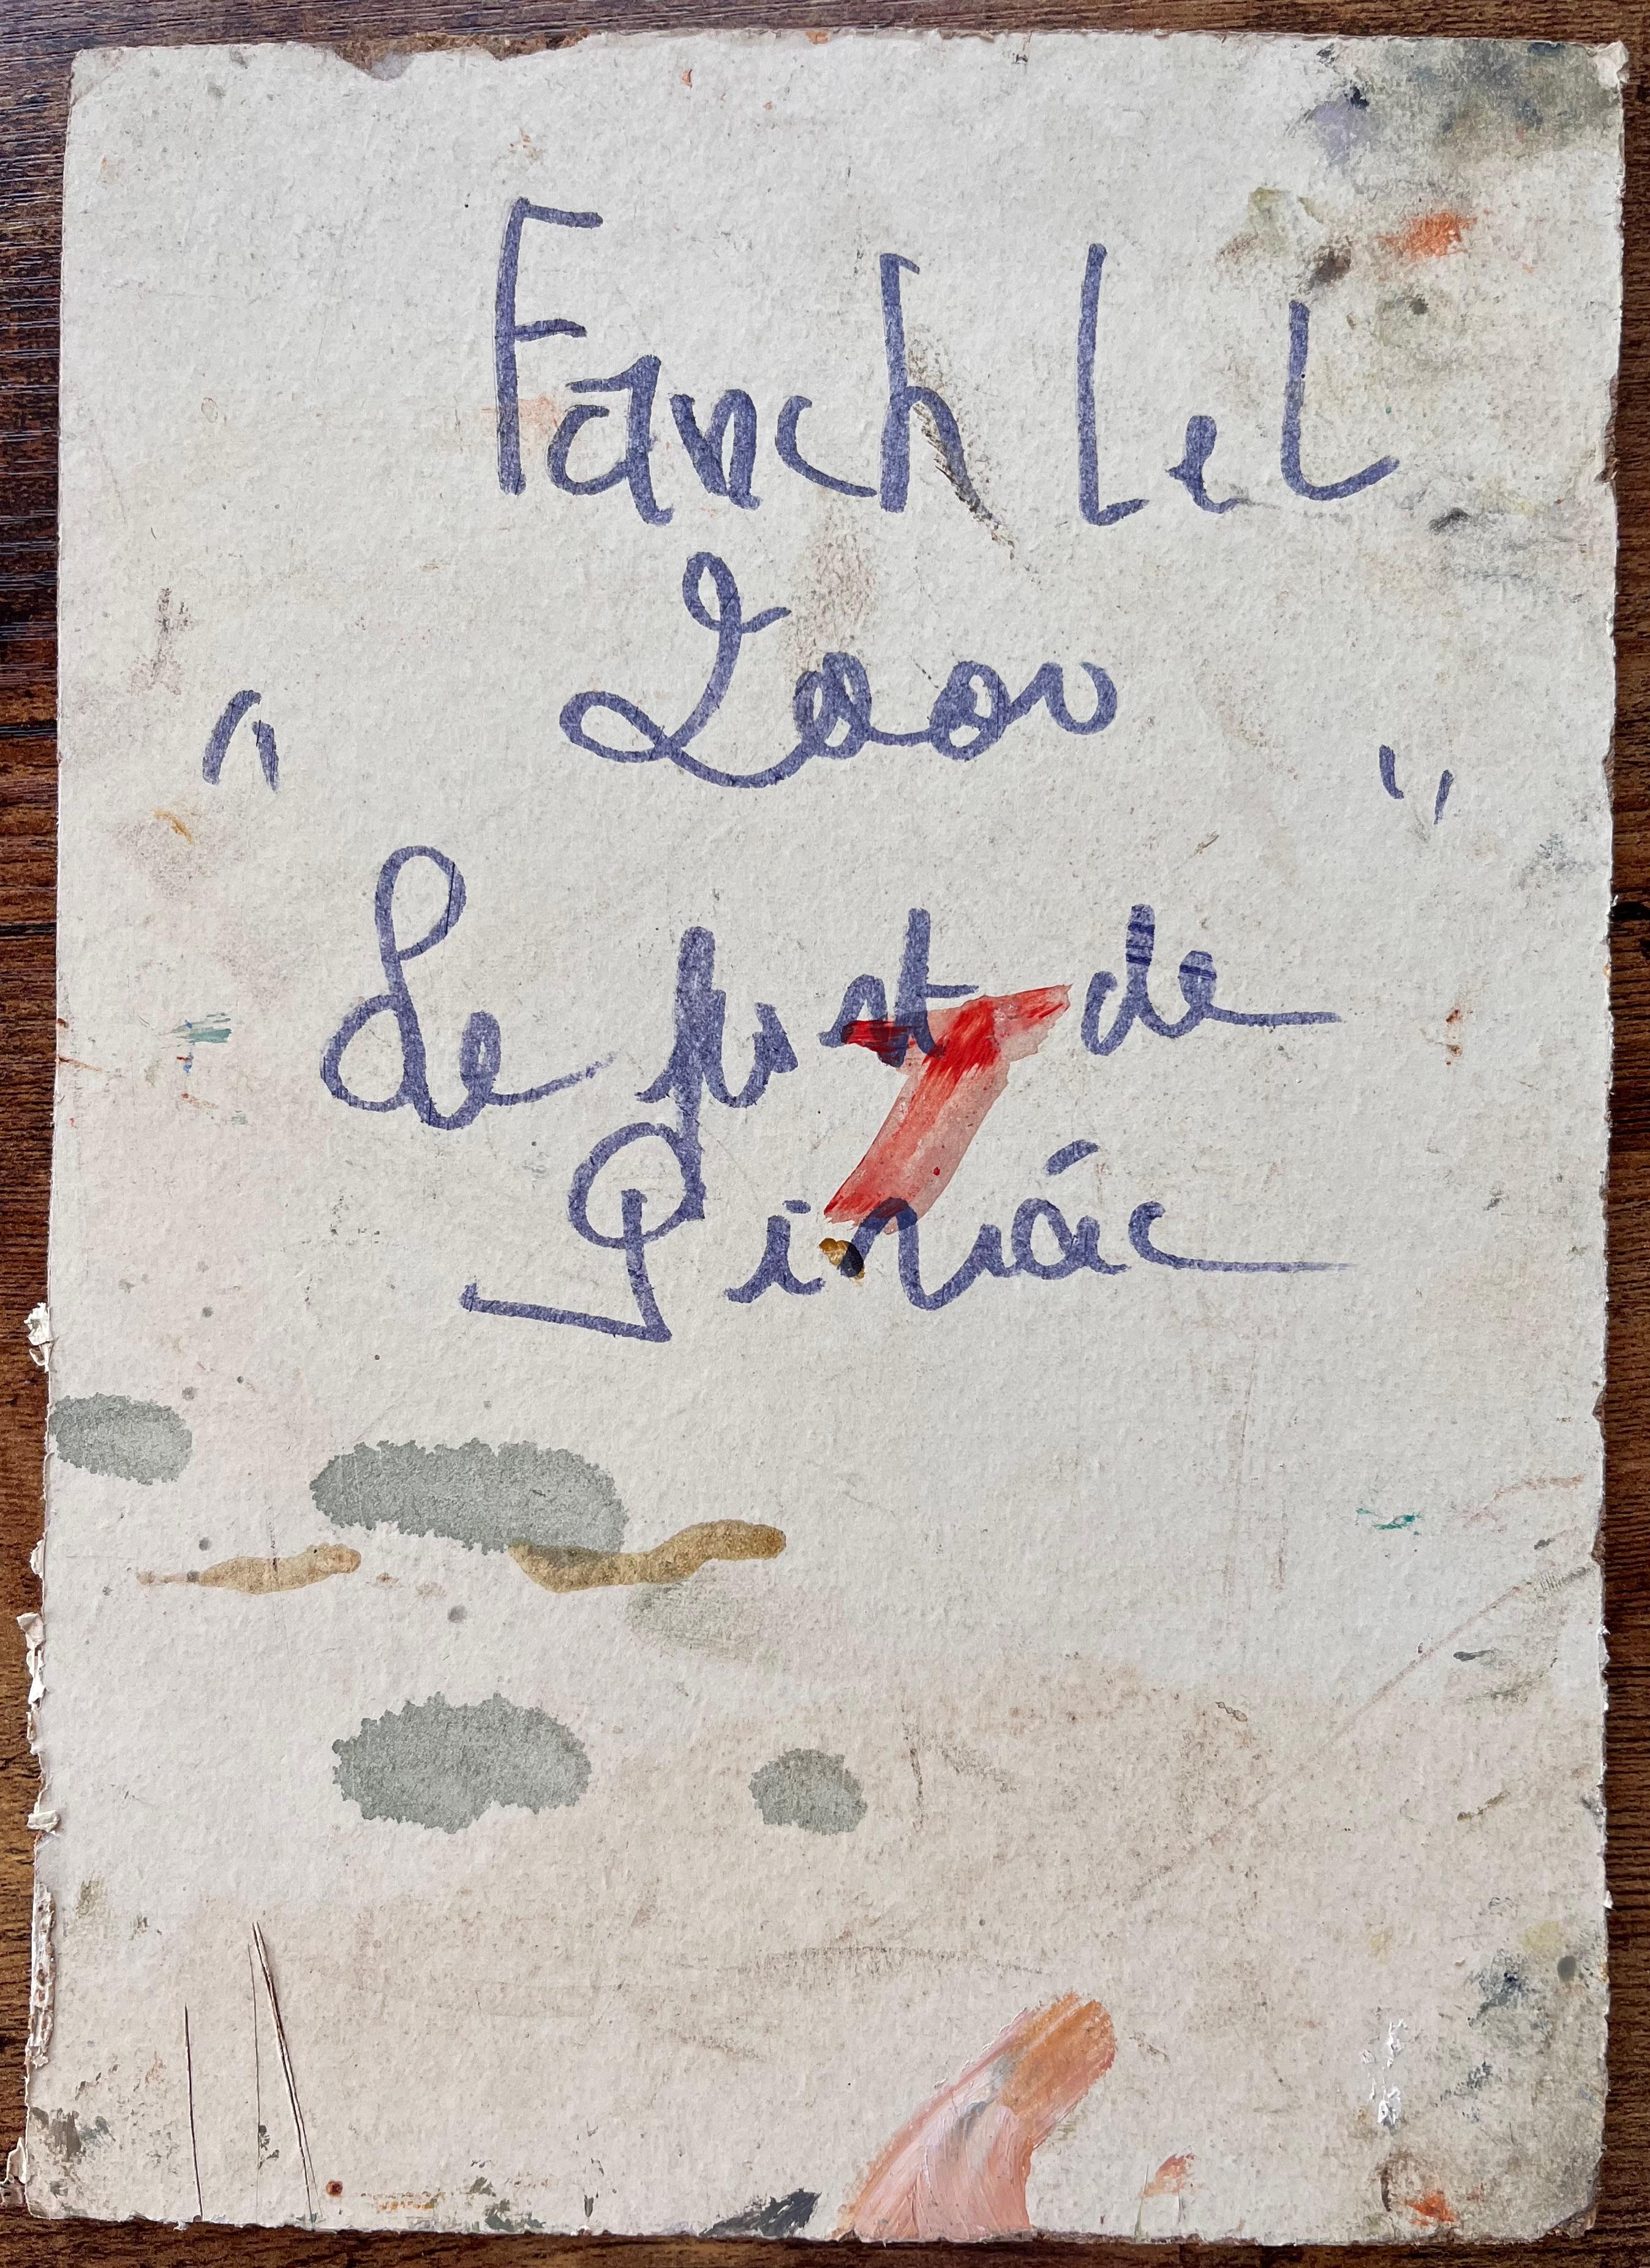 Fanch Lel
2000
" Le port de "
Piriac